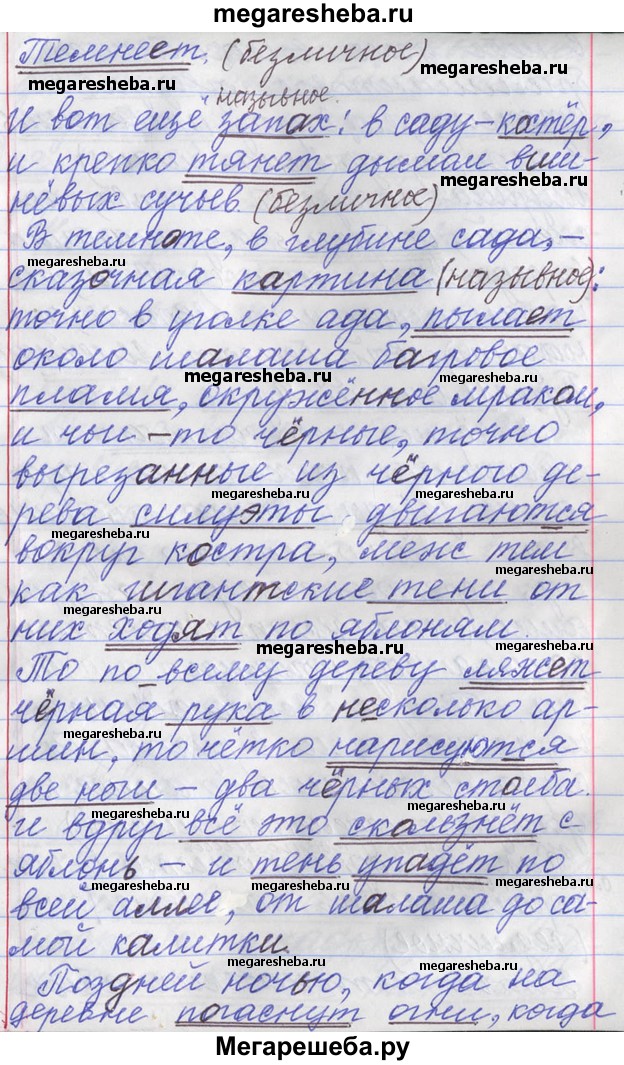 megaresheba.ru
Темнеет. (безличное)
megaresheba.ru
megaresheba.ru
назывное.
И вот ещё запах: в саду – костёр,
megaresheba.ru
и крепко тянет дымом виш-
megaresheba.ru
нёвых сучьев. (безличное)
В темноте, в глубине сада, –
megaresheba.ru
сказочная картина (назывное):
megaresheba.ru
точно в уголке ада, пылает
около шалаша багровое
megaresheba.ru
megaresheba.ru
пламя, окружённое мраком,
и чьи-то чёрные, точно
вырезанные из чёрного де-
megaresheba.ru
megaresheba.ru
рева силуэты двигаются
megaresheba.ru
вокруг костра, меж тем
как гигантские тени от
megaresheba.ru
них ходят по яблоням.
megaresheba.ru
megaresheba.ru
То по всему дереву ляжет
megaresheba.ru
чёрная рука в несколько ар-
шин, то чётко нарисуются
megaresheba.ru
две ноги – два чёрных столба.
megaresheba.ru
megaresheba.ru
И вдруг всё это скользнёт с
яблонь – и тень упадёт по
megaresheba.ru
megaresheba.ru
megaresheba.ru
всей аллее, от шалаша до са-
мой калитки.
megaresheba.ru
megaresheba.ru
Поздней ночью, когда на
деревне погаснут огни, когда
Мегарешеба.ру